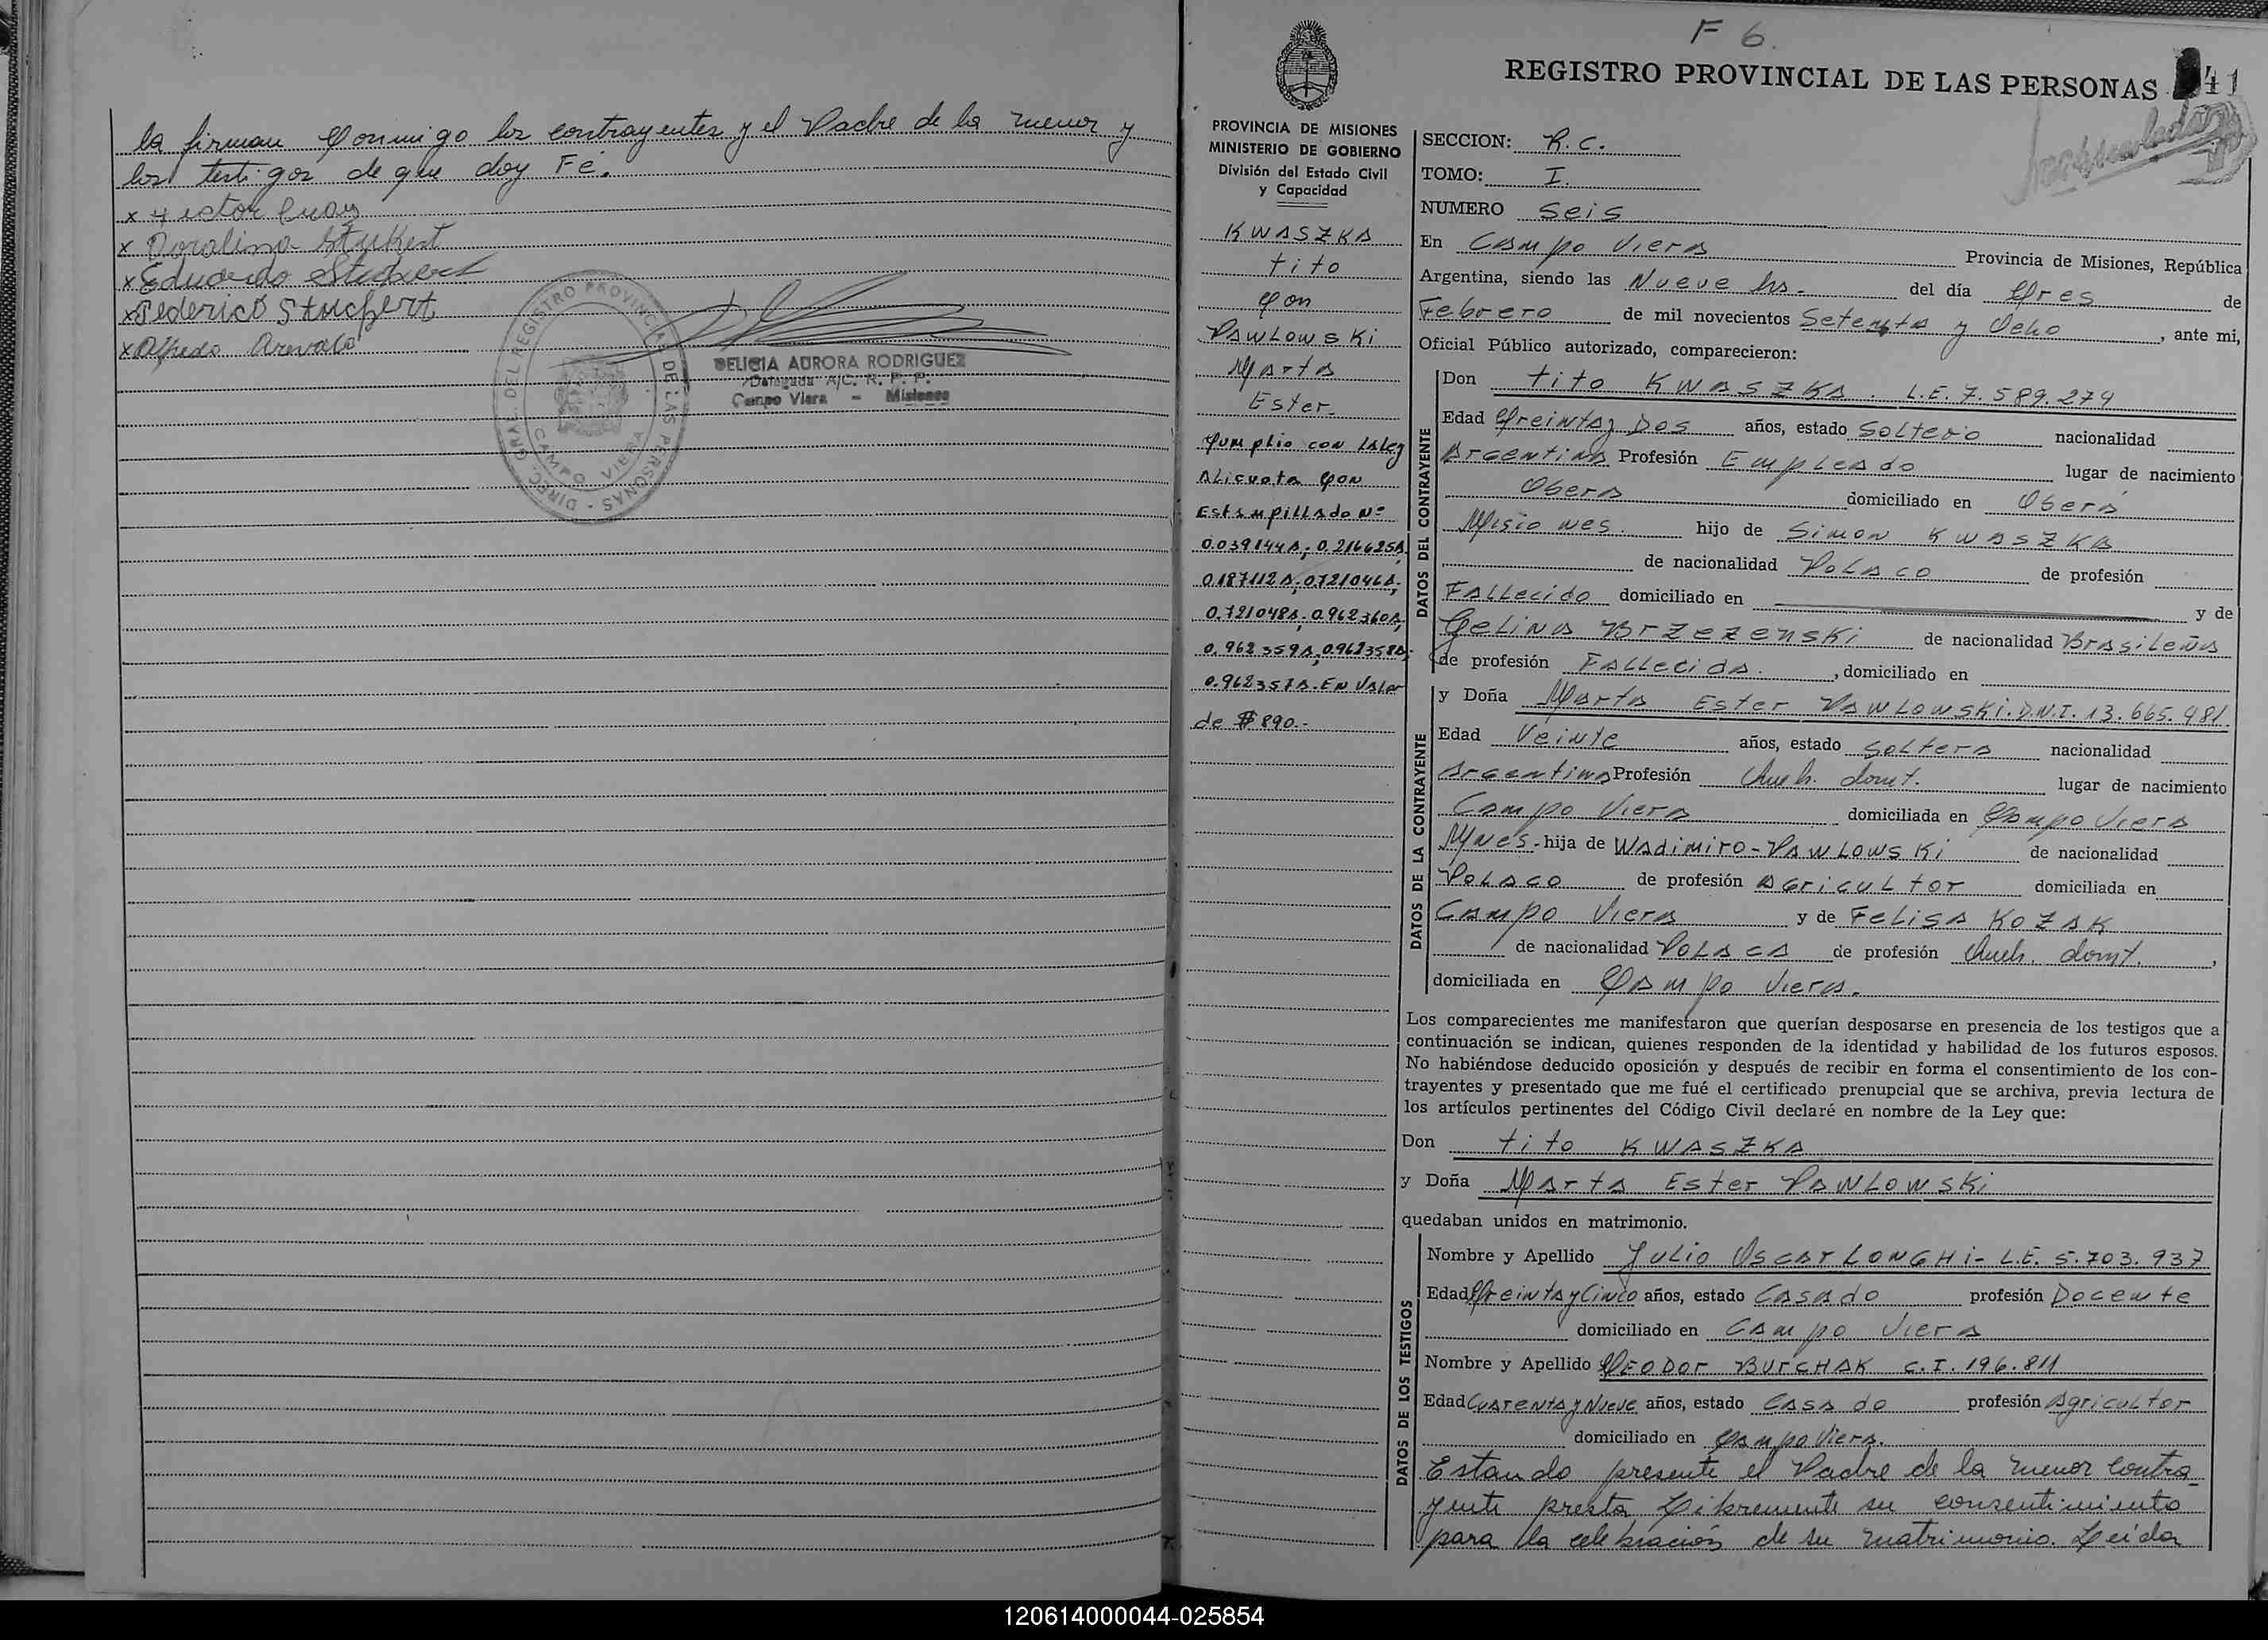 la firman Conmigo los contrayentes y el Padre de la menor y
los testigos de que doy Fé.
x Hector
x Doralina Stukert
x Eduardo Stukert
x Federico Stuckert
x Alfredo Arevalo
DIREC. GRAL. DEL REGISTRO PROVINCIAL DE LAS PERSONAS - CAMPO VIERA
DELICIA AURORA RODRIGUEZ
Delegada A/C. R. P. P.
Campo Viera - Misiones
F 6.
REGISTRO PROVINCIAL DE LAS PERSONAS 41
PROVINCIA DE MISIONES
MINISTERIO DE GOBIERNO
División del Estado Civil
y Capacidad
KWASZKA
Tito
Con
PAWLOWSKi
Marta
Ester.
Cumplio con la Ley
Alicuota Con
Estampillado Nº
0.039144A; 0.216625A,
0.187112A; 0.721046A;
0.721048A; 0.962360A;
0.962359A; 0.962358A;
0.962357A. EN Valor
de $ 890.-
SECCION: R.C.
TOMO: I.
NUMERO Seis
En Campo Viera Provincia de Misiones, República
Argentina, siendo las Nueve hs.- del día Tres de
Febrero de mil novecientos Setenta y Ocho, ante mi,
Oficial Público autorizado, comparecieron:
DATOS DEL CONTRAYENTE
Don Tito KWASZKA. L.E. 7.589.274
Edad Treinta y Dos años, estado Soltero nacionalidad
Argentina Profesión Empleado lugar de nacimiento
Obera domiciliado en Oberá
Misiones. hijo de Simon KWASZKA
de nacionalidad Polaco de profesión
Fallecido domiciliado en y de
Gelina Brzezenski de nacionalidad Brasileña
de profesión Fallecida., domiciliado en
DATOS DE LA CONTRAYENTE
y Doña Marta Ester PAWLOWSKi. D.N.I. 13.665.481
Edad Veinte años, estado Soltera nacionalidad
Argentina Profesión Queh. domt. lugar de nacimiento
Campo Viera domiciliada en Campo Viera
Mnes.- hija de Wadimiro-PAWLOWSKi de nacionalidad
Polaco de profesión Agricultor domiciliada en
Campo Viera y de Felisa KOZAK
de nacionalidad Polaca de profesión Queh. domt.,
domiciliada en Campo Viera.
Los comparecientes me manifestaron que querían desposarse en presencia de los testigos que a
continuación se indican, quienes responden de la identidad y habilidad de los futuros esposos.
No habiéndose deducido oposición y después de recibir en forma el consentimiento de los con-
trayentes y presentado que me fué el certificado prenupcial que se archiva, previa lectura de
los artículos pertinentes del Código Civil declaré en nombre de la Ley que:
Don Tito KWASZKA
y Doña Marta Ester PAWLOWSKi
quedaban unidos en matrimonio.
DATOS DE LOS TESTIGOS
Nombre y Apellido Julio Oscar LONGHi- L.E. 5.703.937
Edad Treinta y Cinco años, estado Casado profesión Docente
domiciliado en Campo Viera
Nombre y Apellido TEODOr BURCHAK C.I. 196.811
Edad Cuarenta y Nueve años, estado Casado profesión Agricultor
domiciliado en Campo Viera.
Estando presente el Padre de la menor contra-
yente presta Libremente su consentimiento
para la celebración de su matrimonio. Leída
120614000044-025854